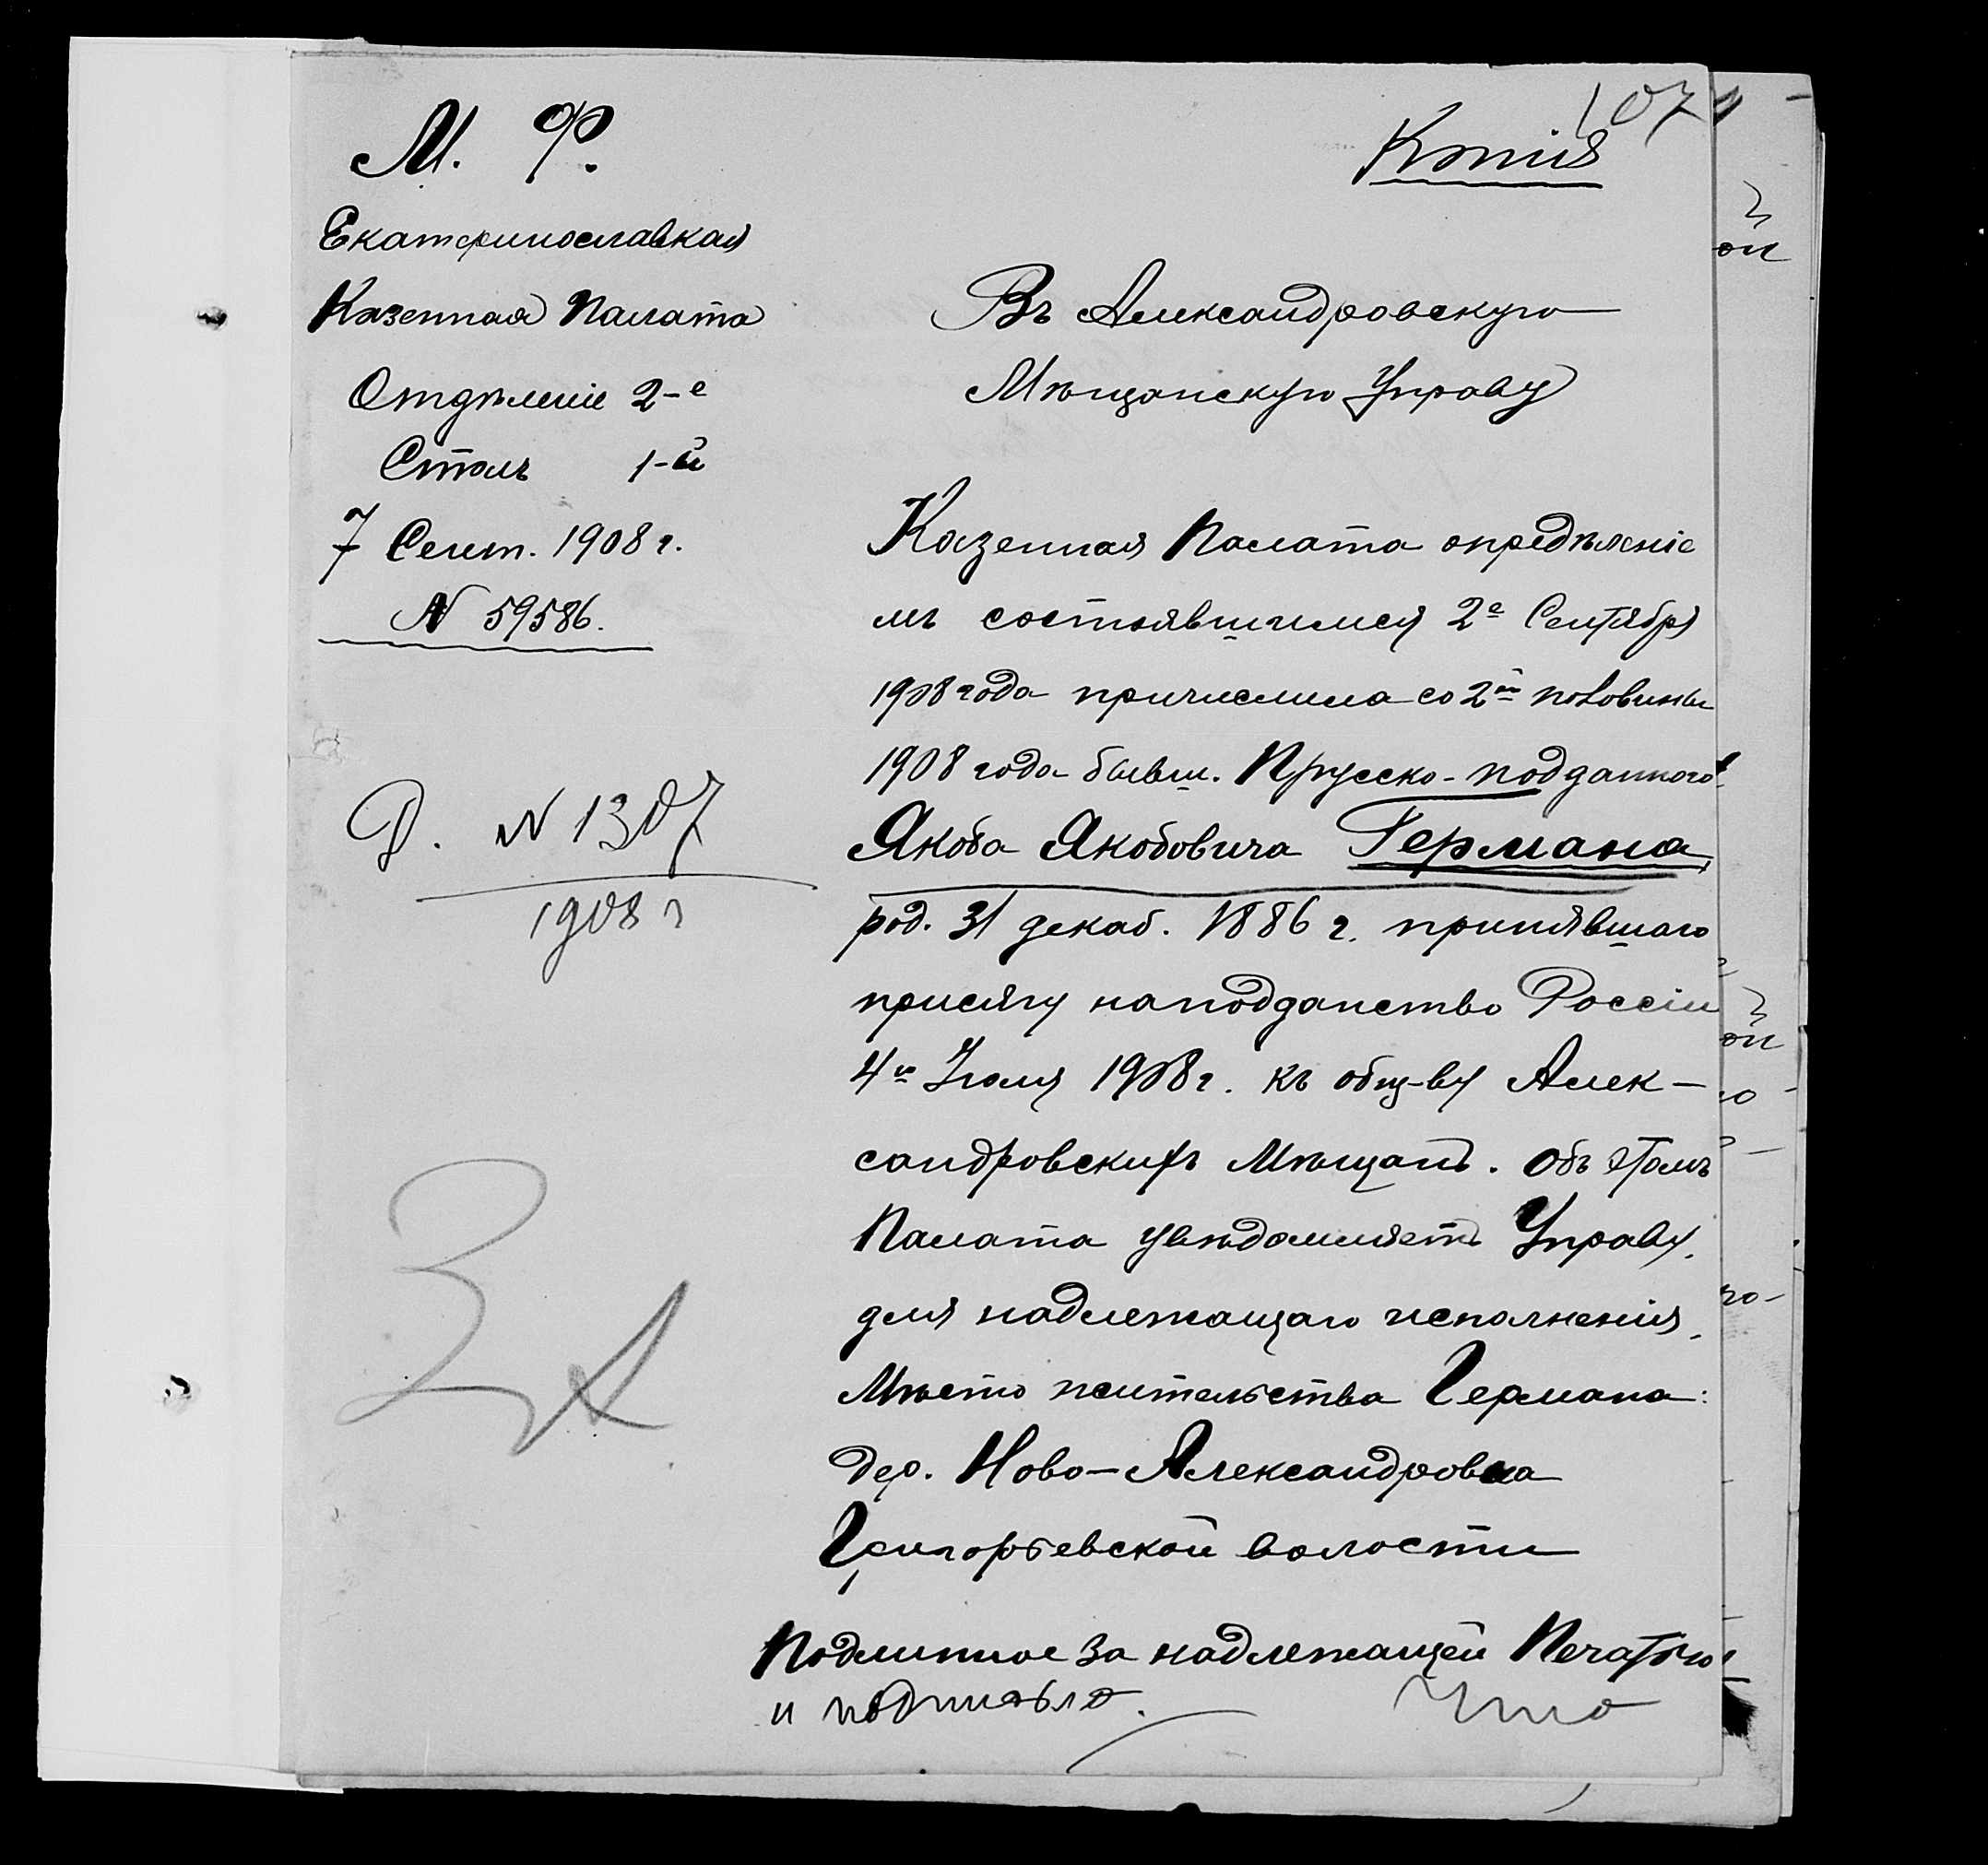 107
М. Ф.
Копія
Екатеринославкая
Казенная Палата
Отдѣленіе 2-е
Столъ 1-й
7 Сент. 1908 г.
N 59586.
Д. N 1307
1908 г
Въ Александровскую
Мѣщанскую Управу
Казенная Палата опредѣленіе
мъ состоявшимся 2е Сентября
1908 года причислила со 2й половины
1908 года бывш. Прусско-подданного
Якоба Якобовича Германа,
род. 31 декаб. 1886 г. принявшаго
присягу на подданство Россіи
4го Іюля 1908 г. къ общ-ву Алек-
сандровскихъ Мѣщанъ. Объ этомъ
Палата увѣдомляетъ Управу
для надлежащаго исполненія.
Мѣсто жительства Германа:
дер. Ново-Александровка
Григорьевской волости
Подлинное за надлежащей Печатью
и подписью.